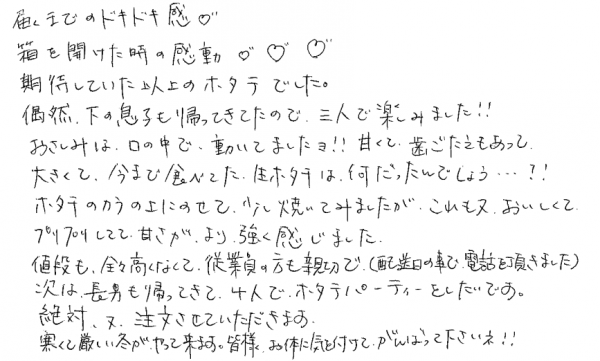 届くまでのドキドキ感♡
箱を開けた時の感動♡♡♡
期待していた以上のホタテでした。
偶然、下の息子も帰ってきてたので、三人で楽しみました!!
おさしみは、口の中で、動いてましたヨ!!甘くて、歯ごたえもあって、
大きくて、今まで食べてた、生ホタテは、何だったんでしょう…?!
ホタテのカラの上にのせて、少し焼いてみましたが、これも又、おいしくて、
プリプリしてて、甘さが、より、強く感じました。
値段も、全々高くなくて、従業員の方も親切で、(配送日の事で、電話を頂きました)
次は、長男も帰ってきて、4人で、ホタテパーティーをしたいです。
絶対、又、注文させていただきます。
寒くて厳しい冬が、やって来ます。皆様、お体に気を付けて、がんばって下さいネ!!